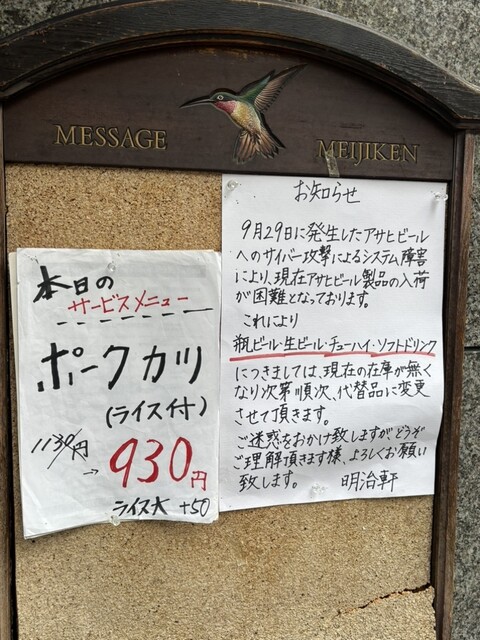 MESSAGE
MEIJIKEN
本日の
サービスメニュー
ポークカツ
(ライス付)
1130円
→930円
ライス大 +50
お知らせ
9月29日に発生したアサヒビール
へのサイバー攻撃によるシステム障害
により、現在アサヒビール製品の入荷
が困難となっております。
これにより
瓶ビール・生ビール・チューハイ・ソフトドリンク
につきましては、現在の在庫が無く
なり次第順次、代替品に変更
させて頂きます。
ご迷惑をおかけ致しますがどうぞ
ご理解頂きます様、よろしくお願い
致します。 明治軒